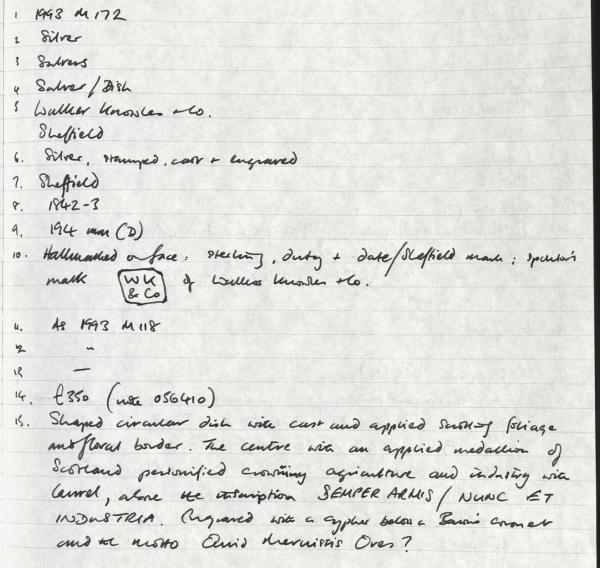 1 1993 M 172
2 Silver
3 Salvers
4 Salver/Dish
5 Walker Knowles + Co.
Sheffield
6. Silver, stamped, cast + engraved
7. Sheffield
8. 1842-3
9. 194 mm (D)
10. Hallmarked on face: sterling, duty + date/Sheffield mark; sponsor's
mark WK
& Co of Walker Knowles + Co.
11. As 1993 M 118
12 "
13 —
14. £350 (note 056410)
15. Shaped circular dish with cast and applied scrolling foliage
and floral border. The centre with an applied medallion of
Scotland personified crowning agriculture and industry with
laurel, above the inscription SEMPER ARMIS / NUNC ET
INDUSTRIA. Engraved with a cypher below a Baron's coronet
and the motto Quid Meruistis Oves?